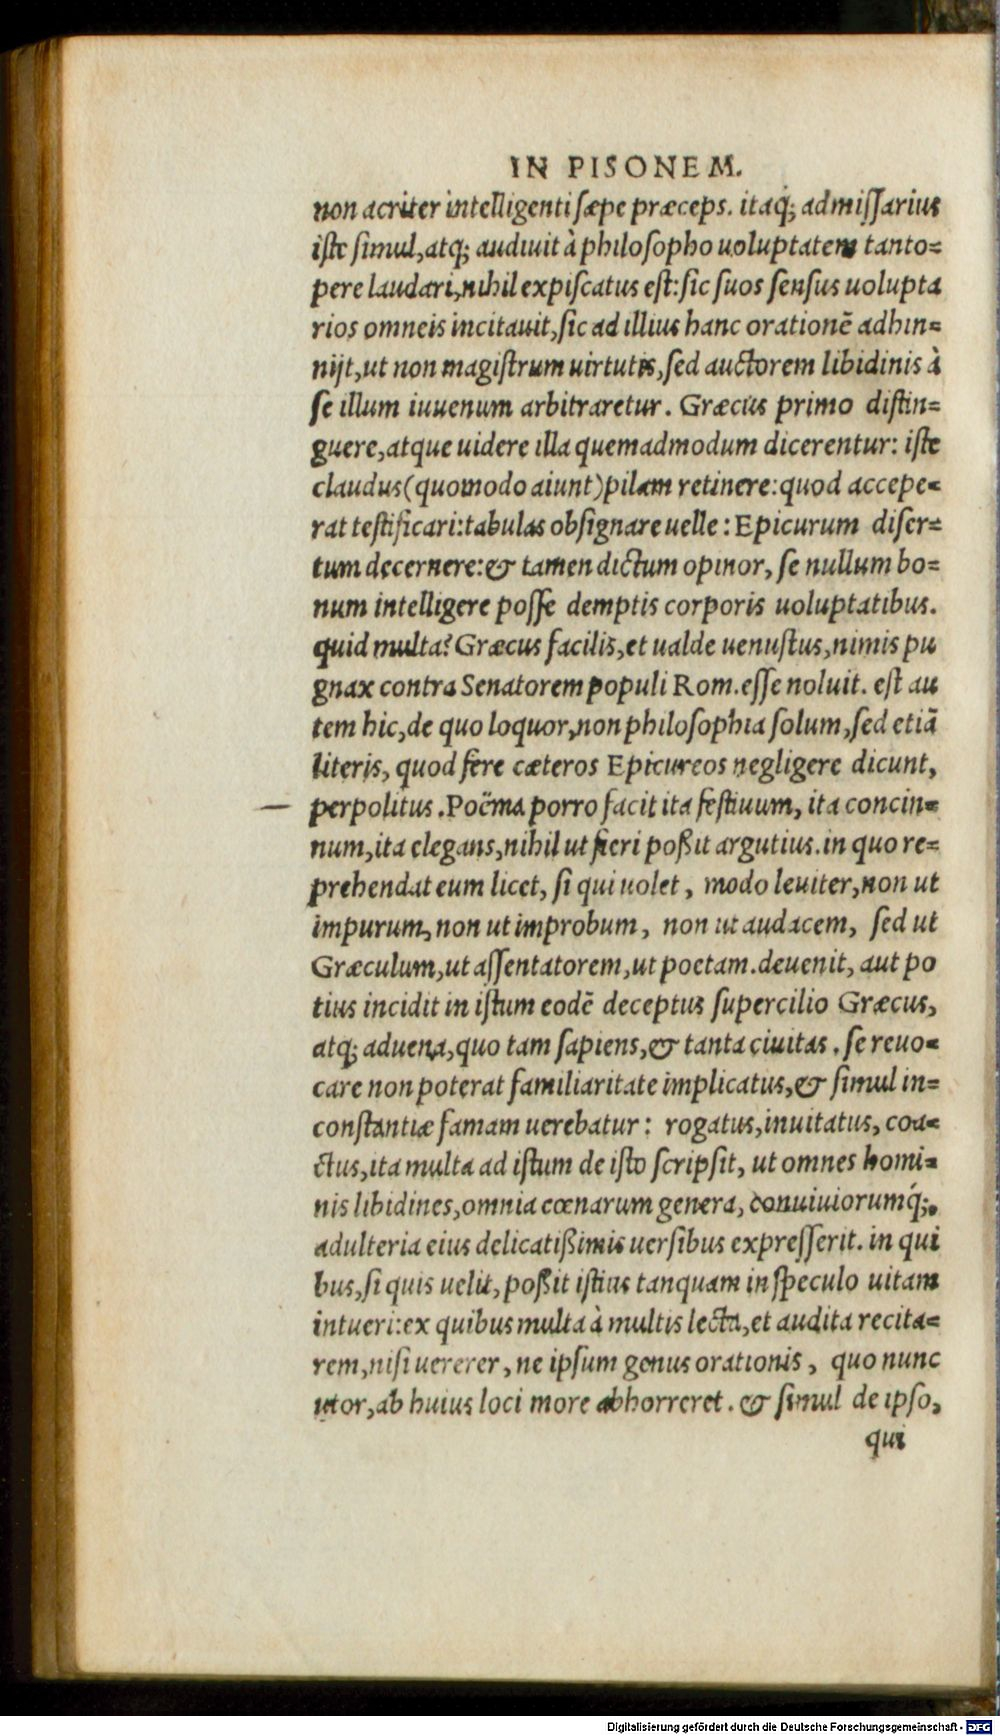 IN PISONEM.
non acriter intelligenti sæpe præceps. itaq; admissarius
iste simul, atq; audiuit à philosopho uoluptatem tanto=
pere laudari, nihil expiscatus est: sic suos sensus uolupta
rios omneis incitauit, sic ad illius hanc orationē adhin=
nijt, ut non magistrum uirtutis, sed auctorem libidinis à
se illum iuuenum arbitraretur. Græcus primo distin=
guere, atque uidere illa quemadmodum dicerentur: iste
claudus (quomodo aiunt) pilam retinere: quod accepe=
rat testificari: tabulas obsignare uelle: Epicurum diser=
tum decernere: & tamen dictum opinor, se nullum bo=
num intelligere posse demptis corporis uoluptatibus.
quid multa? Græcus facilis, et ualde uenustus, nimis pu
gnax contra Senatorem populi Rom. esse noluit. est au
tem hic, de quo loquor, non philosophia solum, sed etiā
literis, quod fere cæteros Epicureos negligere dicunt,
perpolitus. Poëma porro facit ita festiuum, ita concin=
num, ita elegans, nihil ut fieri poßit argutius. in quo re=
prehendat eum licet, si qui uolet, modo leuiter, non ut
impurum, non ut improbum, non ut audacem, sed ut
Græculum, ut assentatorem, ut poetam. deuenit, aut po
tius incidit in istum eodē deceptus supercilio Græcus,
atq; aduena, quo tam sapiens, & tanta ciuitas. se reuo=
care non poterat familiaritate implicatus, & simul in=
constantiæ famam uerebatur: rogatus, inuitatus, coa=
ctus, ita multa ad istum de isto scripsit, ut omnes homi=
nis libidines, omnia cœnarum genera, conuiuiorumq́;,
adulteria eius delicatißimis uersibus expresserit. in qui
bus, si quis uelit, poßit istius tanquam in speculo uitam
intueri: ex quibus multa à multis lecta, et audita recita=
rem, nisi uererer, ne ipsum genus orationis, quo nunc
utor, ab huius loci more abhorreret. & simul de ipso,
qui
Digitalisierung gefördert durch die Deutsche Forschungsgemeinschaft - DFG